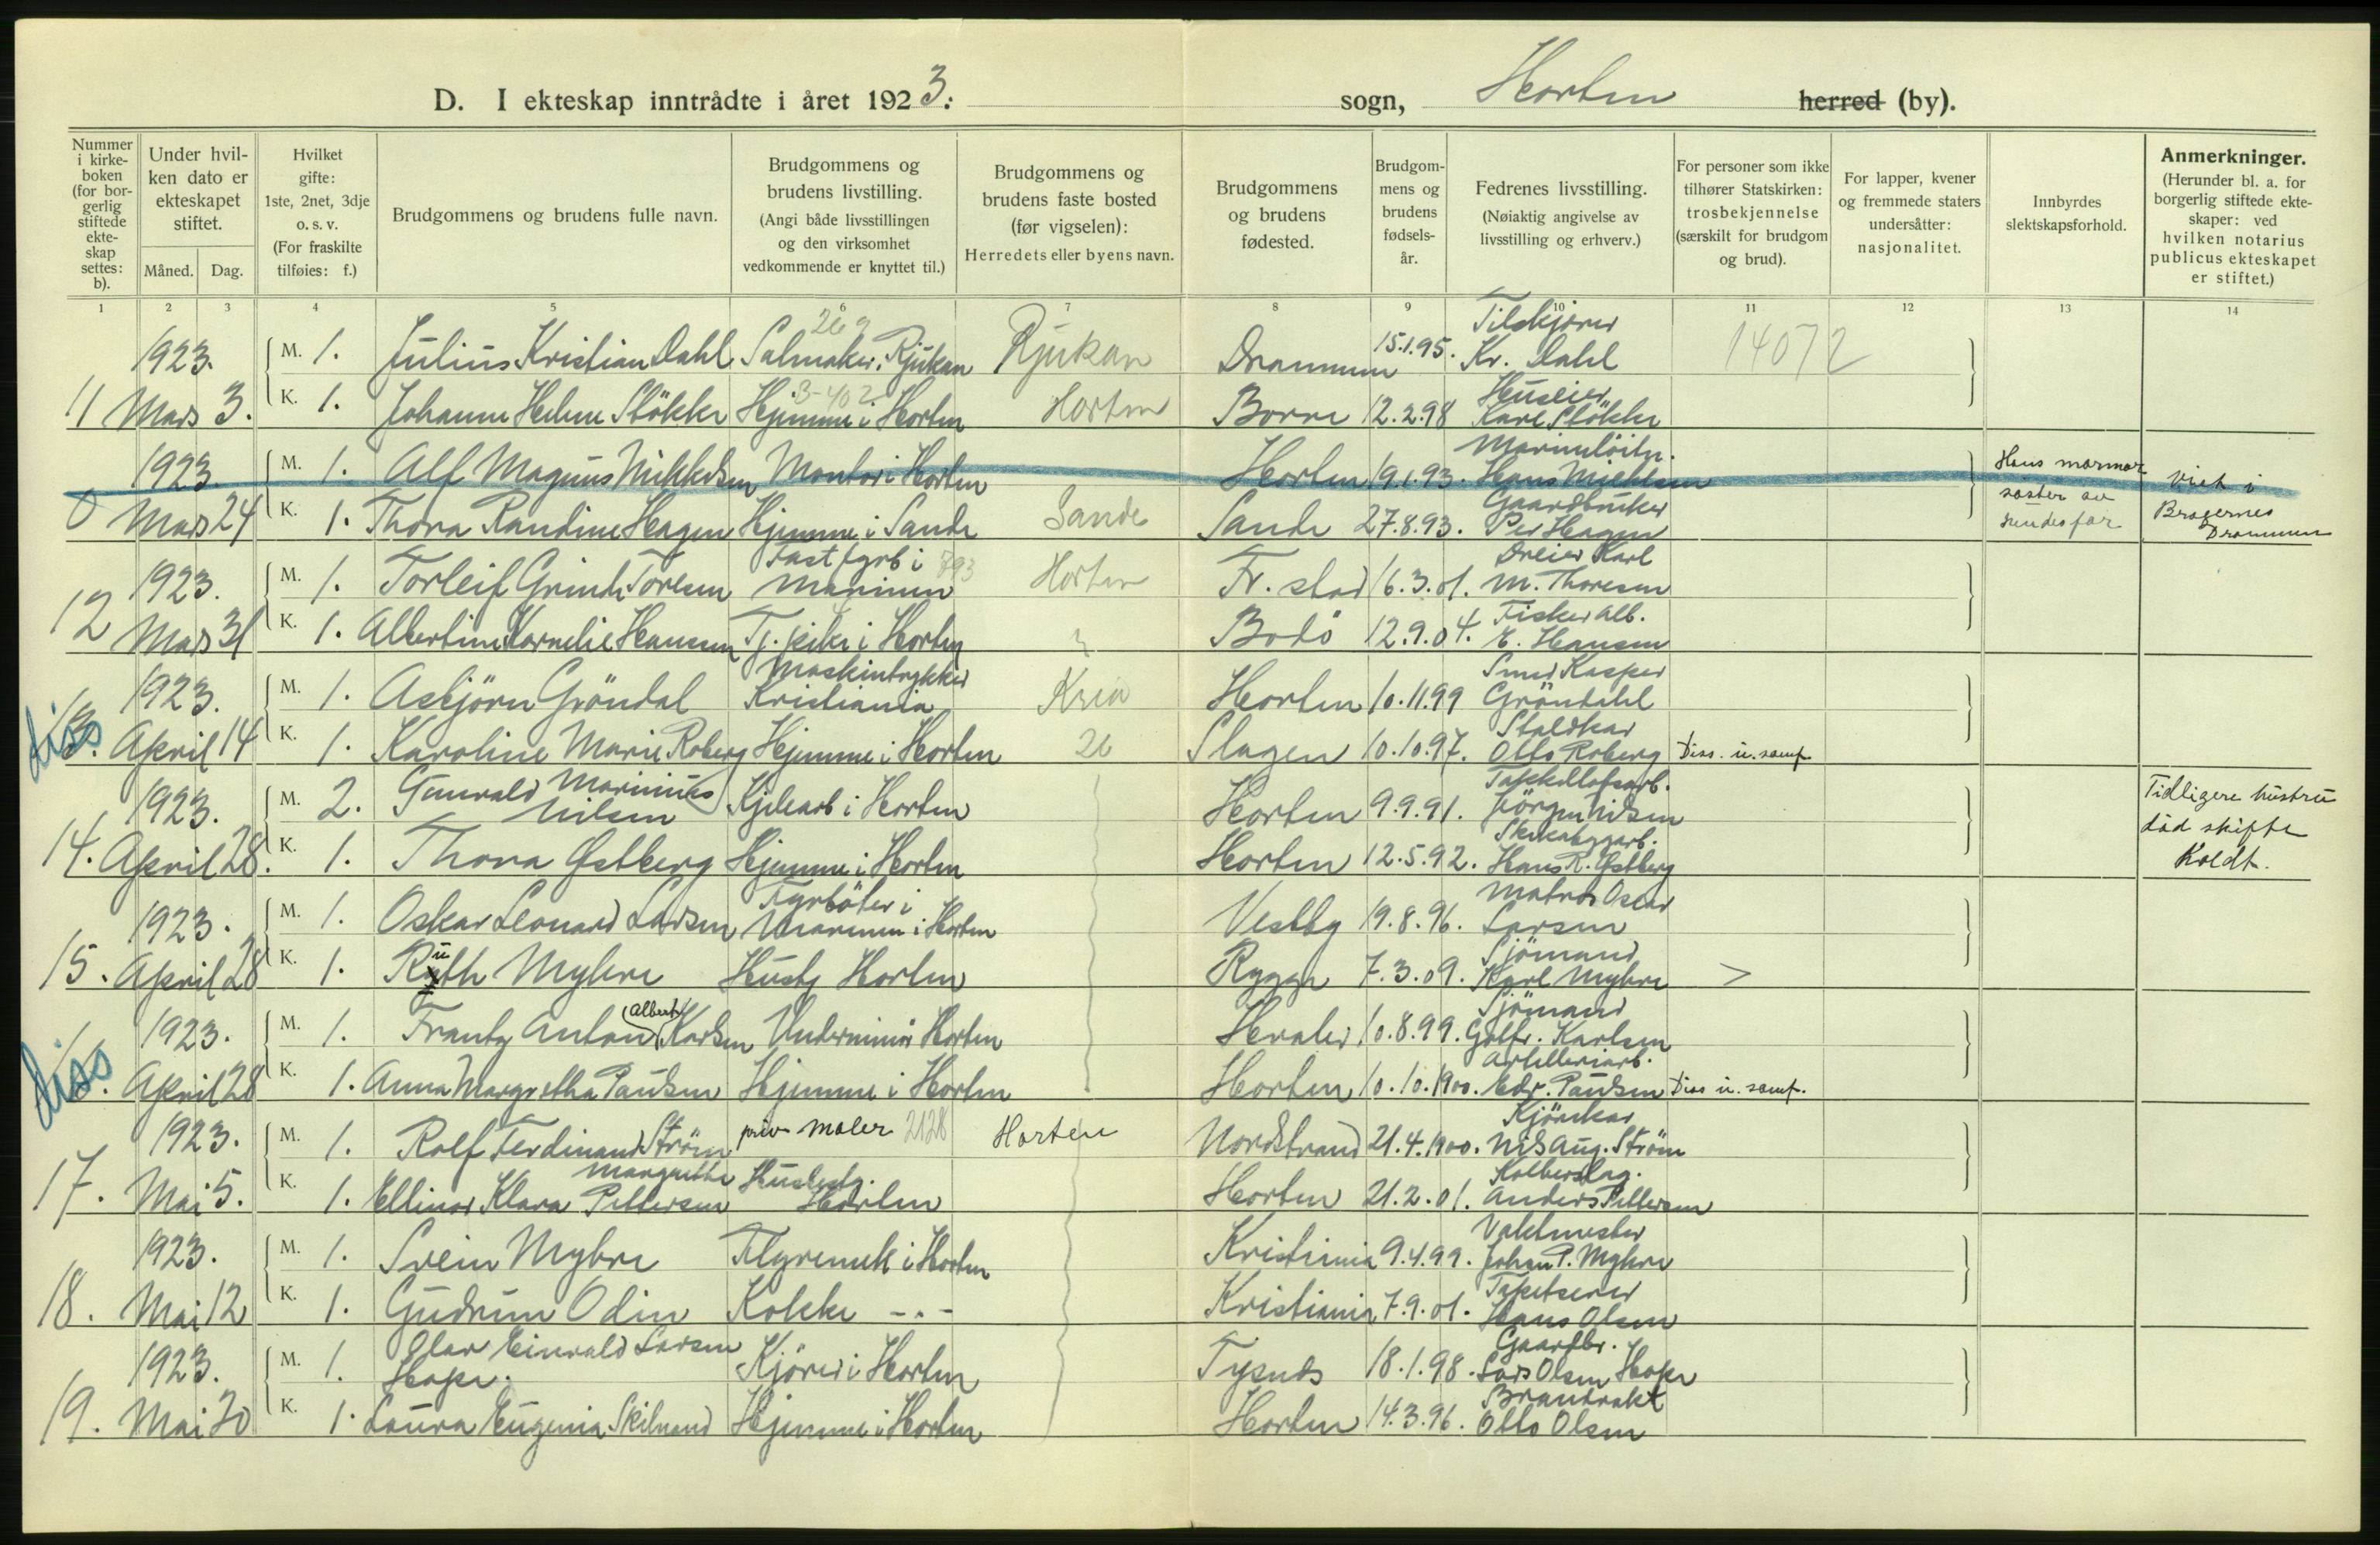 D. I ekteskap inntrådte i året 1923. sogn, Horten herred (by).
Nummer i kirkeboken (for borgerlig stiftede ekteskap settes: b).
Under hvilken dato er ekteskapet stiftet.
Måned. Dag.
Hvilket gifte: 1ste, 2net, 3dje o. s. v. (For fraskilte tilføies: f.)
Brudgommens og brudens fulle navn.
Brudgommens og brudens livstilling. (Angi både livsstillingen og den virksomhet vedkommende er knyttet til.)
Brudgommens og brudens faste bosted (før vigselen): Herredets eller byens navn.
Brudgommens og brudens fødested.
Brudgommens og brudens fødselsår.
Fedrenes livsstilling. (Nøiaktig angivelse av livsstilling og erhverv.)
For personer som ikke tilhører Statskirken: trosbekjennelse (særskilt for brudgom og brud).
For lapper, kvener og fremmede staters undersåtter: nasjonalitet.
Innbyrdes slektskapsforhold.
Anmerkninger. (Herunder bl. a. for borgerlig stiftede ekteskaper: ved hvilken notarius publicus ekteskapet er stiftet.)
1 2 3 4 5 6 7 8 9 10 11 12 13 14
1923. M. 1. Julius Kristian Dahl Salmaker. Rjukan Rjukan Drammen 15.1.95. Tilskjærer Kr. Dahl 14072
11 Mars 3. K. 1. Johanne Helene Stökke Hjemme i Horten B-402 Horten Borre 12.2.98 Huseier Karl Stökke
1923. M. 1. Alf Magnus Mikkelsen Montör i Horten Horten 19.1.93. Marinelöitn. Hans Mikkelsen Hans mormor
0 Mars 24 K. 1. Thora Randine Hagen Hjemme i Sande Sande Sande 27.8.93. Gaardbruker Per Hagen söster av hendes far Viet i Bragernes Drammen
1923. M. 1. Torleif Grinde Toresen Fast fyrb i Marinen 793 Horten Fr. stad 16.3.01. Dreier Karl M. Thoresen
12 Mars 31 K. 1. Albertine Kornelie Hansen Tj. pike i Horten Bodö 12.9.04. Fisker Alb. E. Hansen
diss 1923. M. 1. Asbjörn Gröndal Maskintrykker Kristiania Kria Horten 10.11.99 Smed Kasper Gröndahl
13. April 14 K. 1. Karoline Marie Roberg Hjemme i Horten 26 Slagen 10.10.97. Staldkar Otto Roberg Diss. u. samf.
1923. M. 2. Gunvald Marinius Nilsen Kjelearb i Horten Horten 9.9.91. Takkelloftsarb. Jörgen Nilsen Tidligere hustru
14. April 28. K. 1. Thora Østberg Hjemme i Horten Horten 12.5.92. Skibsbyggarb. Hans R. Østberg död skifte Holdt.
1923. M. 1. Oskar Leonard Larsen Fyrböter i Marinen i Horten Vestby 19.8.96. Matros Oscar Larsen
15. April 28 K. 1. Ruth Myhre Hustj Horten Rygge 7.3.09. Sjömand Karl Myhre >
diss 1923. M. 1. Frantz Anton (Albert) Karlsen Underminör Horten Hvaler 10.8.99. Sjömand Gotfr. Karlsen
16. April 28 K. 1. Anna Margretha Paulsen Hjemme i Horten Horten 10.10.1900. Artilleriarb. Edv. Paulsen Diss u. samf.
1923. M. 1. Rolf Ferdinand Ström priv maler 2128 Horten Nordstrand 21.4.1900. Kjörekar Nils Aug. Ström
17. Mai 5. K. 1. Ellinor Klara Margrethe Pettersen Huslestj. Horten Horten 21.2.01. Anders Pettersen
1923. M. 1. Svein Myhre Flyvemek i Horten Kristiania 9.4.99. Vaktmester Johan P. Myhre
18. Mai 12 K. 1. Gudrun Odin Kokke -"- Kristiania 7.9.01. Tapetserer Hans Olsen
1923. M. 1. Olav Einvald Larsen Hope. Kjörer i Horten Tysnes 18.1.98. Gaardbr. Lars Olsen Hope
19. Mai 20 K. 1. Laura Eugenia Skilnand Hjemme i Horten Horten 14.3.96. Brandvakt Otto Olsen